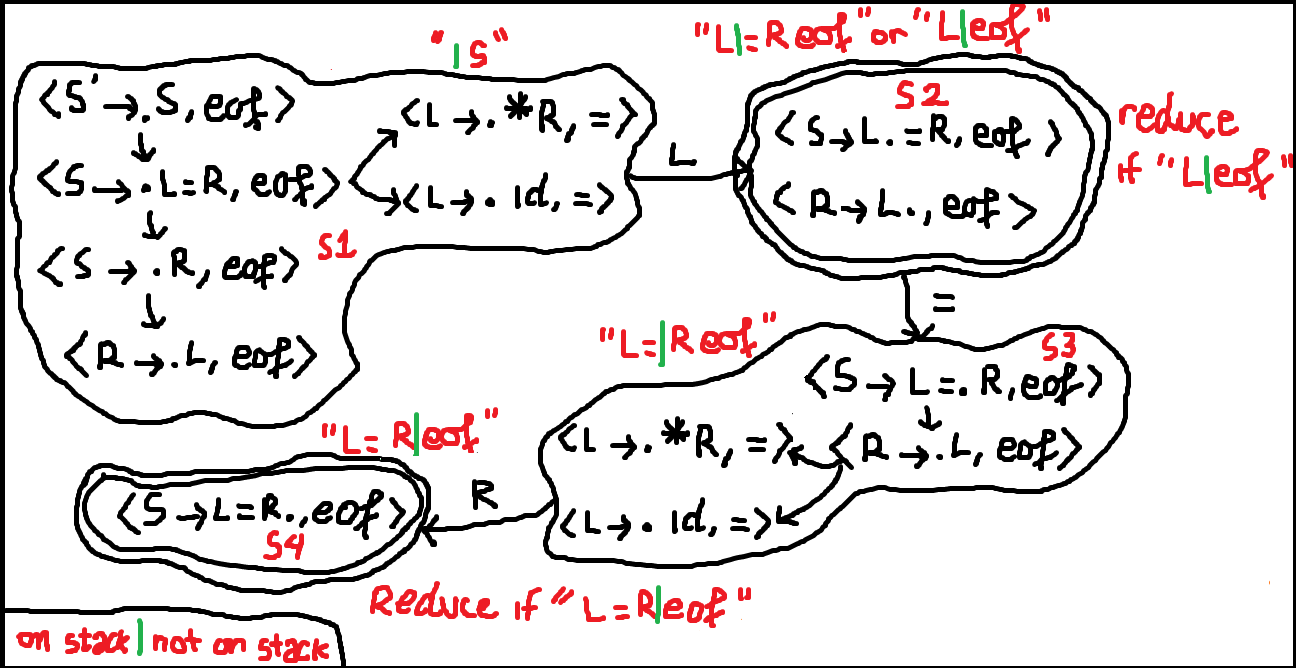 "|S"
<S'→.S, eof>
<S→.L=R, eof>
<S→.R, eof>
<R→.L, eof>
<L→.*R, =>
<L→.Id, =>
S1
L
"L|=R eof" or "L|eof"
S2
<S→L.=R, eof>
<R→L., eof>
reduce
if "L|eof"
=
"L=|R eof"
S3
<S→L=.R, eof>
<R→.L, eof>
<L→.*R, =>
<L→.Id, =>
R
"L=R|eof"
<S→L=R., eof>
S4
Reduce if "L=R|eof"
on stack|not on stack